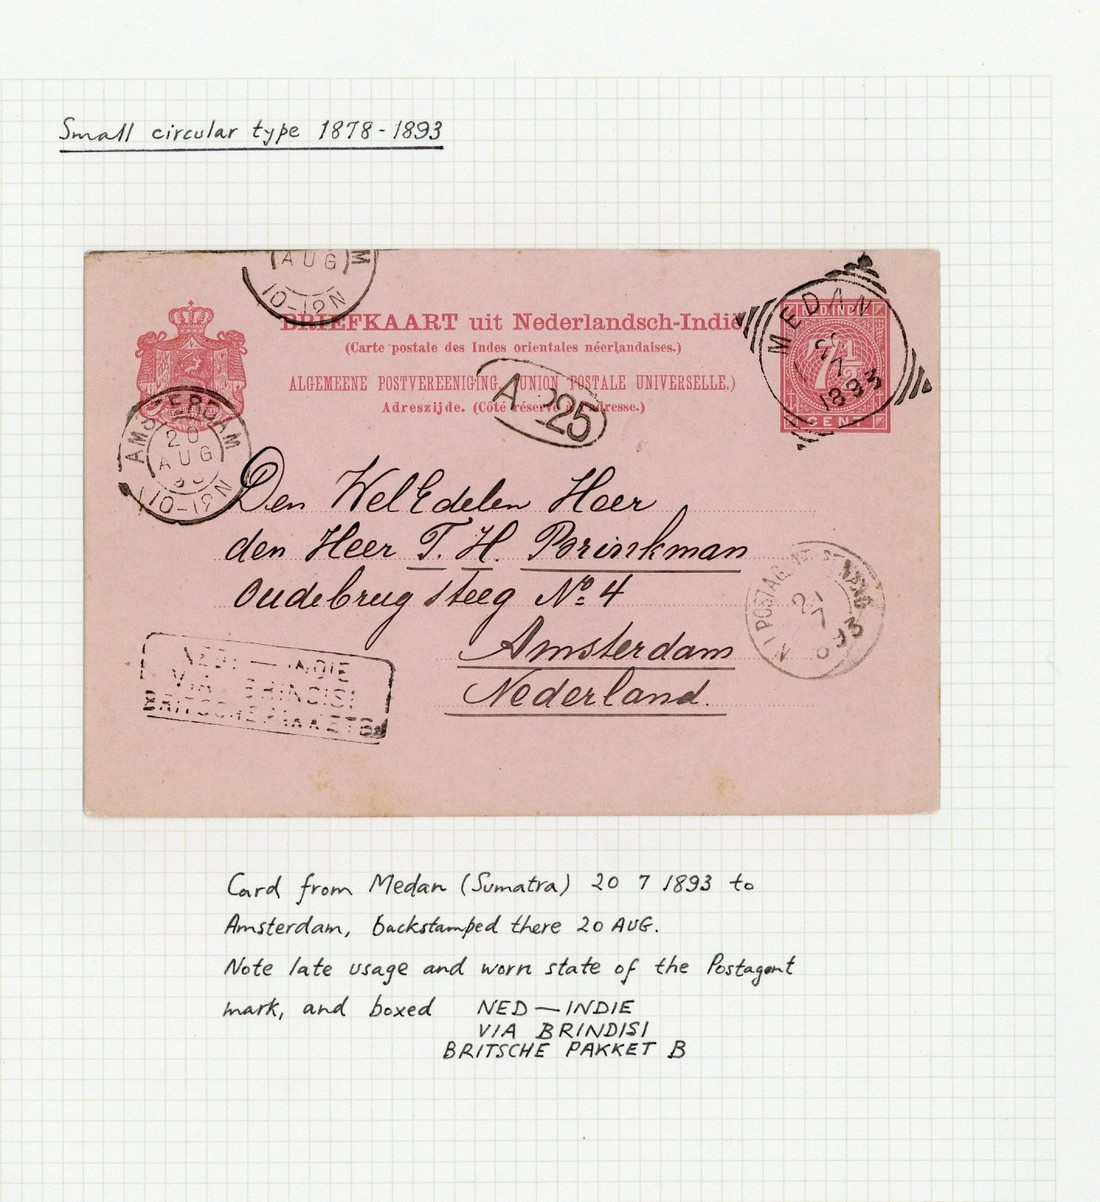 Small circular type 1878-1893
AUG M
10-12N
BRIEFKAART uit Nederlandsch-Indië
(Carte postale des Indes orientales néerlandaises.)
ALGEMEENE POSTVEREENIGING. (UNION POSTALE UNIVERSELLE.)
Adreszijde. (Côté réservé à l'adresse.)
MEDAN
7
1893
NED. INDIË
7 1/2
CENT
A 225
AMSTERDAM
20
AUG
10-12N
Den WelEdelen Heer
den Heer T. H. Brinkman
Oudebrug steeg No 4
Amsterdam
Nederland.
N I POSTAGENT PENANG
7
893
NED. — INDIE
VIA BRINDISI
BRITSCHE PAKKET B
Card from Medan (Sumatra) 20 7 1893 to
Amsterdam, backstamped there 20 AUG.
Note late usage and worn state of the Postagent
mark, and boxed NED — INDIE
VIA BRINDISI
BRITSCHE PAKKET B